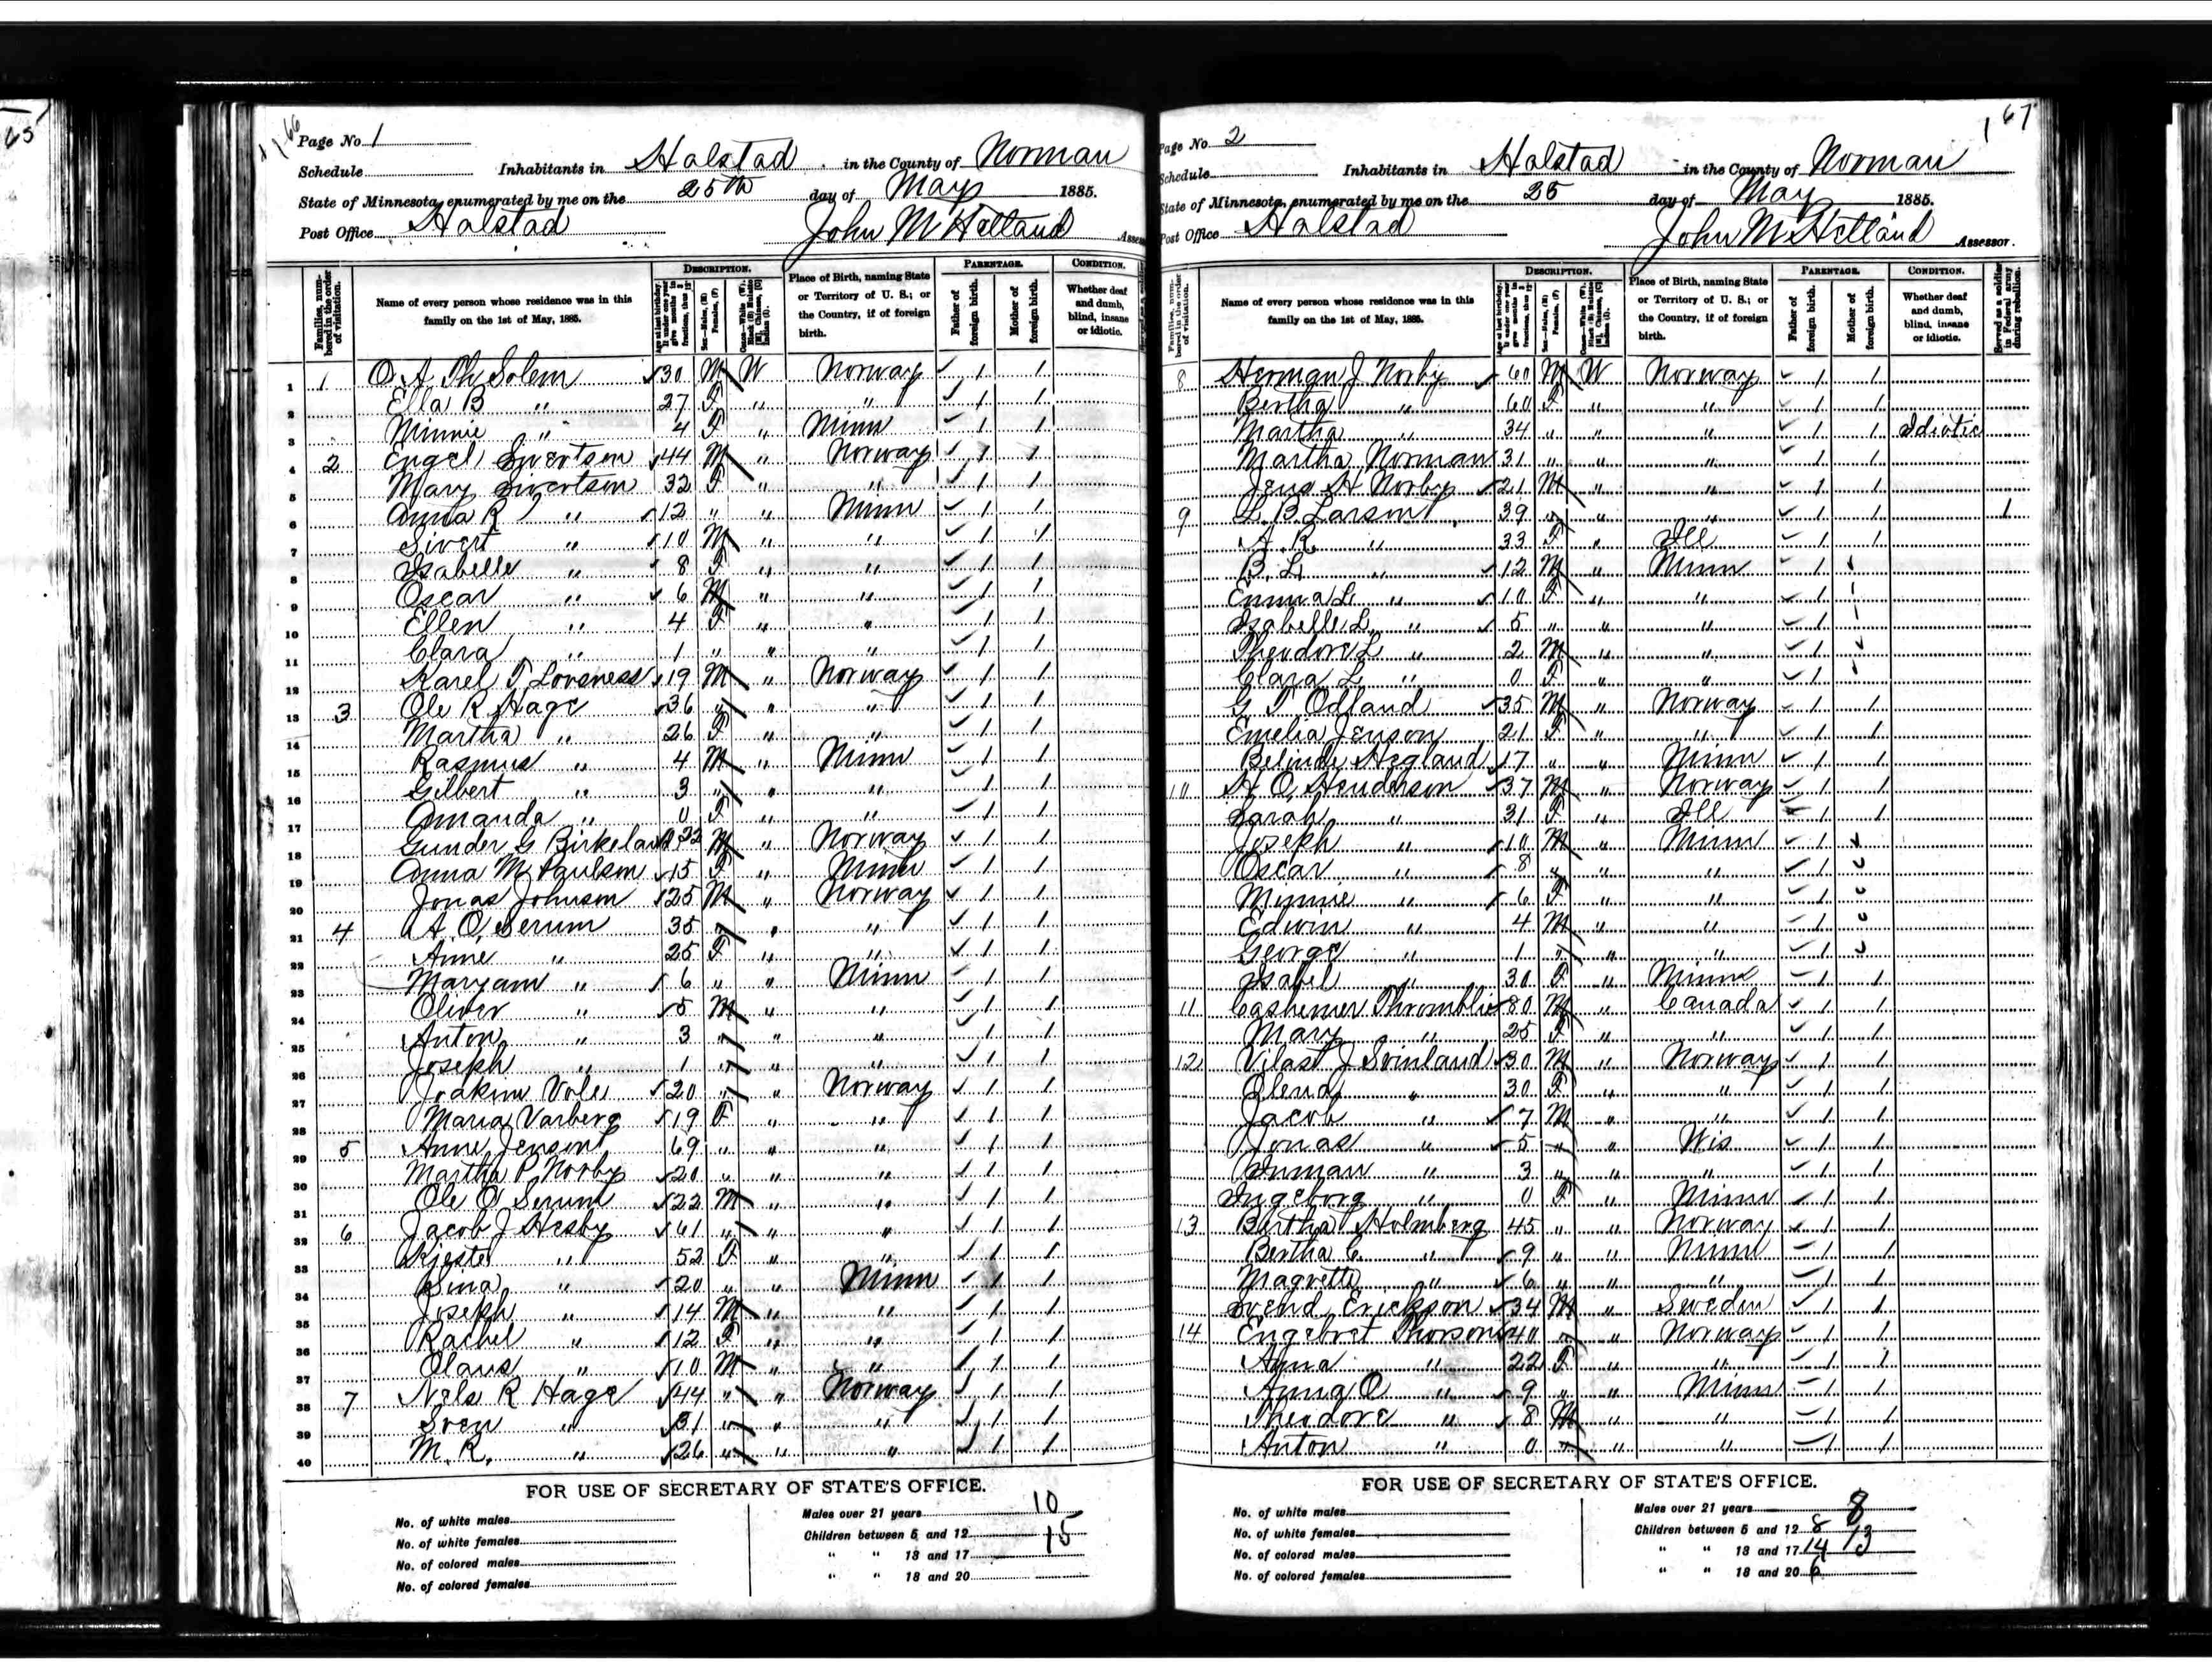 65
1 66
Page No. 1
Schedule Inhabitants in Halstad in the County of Norman
State of Minnesota, enumerated by me on the 25th day of May 1885.
Post Office Halstad John M Hetland Assessor
Families, numbered in the order of visitation.
Name of every person whose residence was in this family on the 1st of May, 1885.
DESCRIPTION.
Age at last birthday. If under one year give months in fractions, thus
Sex—Males, (M) Females, (F)
Color—White (W), Black (B) Mulatto (M), Chinese, (C) Indian (I).
Place of Birth, naming State or Territory of U. S.; or the Country, if of foreign birth.
PARENTAGE.
Father of foreign birth.
Mother of foreign birth.
CONDITION.
Whether deaf and dumb, blind, insane or idiotic.
1 1 O. A. Th Solem 30 M W Norway 1 1
2 Ella B " 27 F " " 1 1
3 Minnie " 4 F " Minn 1 1
4 2 Engel Sivertsen 44 M " Norway 1 1
5 Mary Sivertsen 32 F " " 1 1
6 Anna R " 12 " " Minn 1 1
7 Sivert " 10 M " " 1 1
8 Isabelle " 8 F " " 1 1
9 Oscar " 6 M " " 1 1
10 Ellen " 4 F " " 1 1
11 Clara " 1 " " " 1 1
12 Karel T Lovsness 19 M " Norway 1 1
13 3 Ole R Hage 36 " " " 1 1
14 Martha " 26 F " " 1 1
15 Rasmus " 4 M " Minn 1 1
16 Gilbert " 3 " " " 1 1
17 Amanda " 0 F " " 1 1
18 Gunder G Birkeland 22 M " Norway 1 1
19 Anna M Paulson 15 F " Minn 1 1
20 Jonas Johnson 25 M " Norway 1 1
21 4 A. O. Serum 35 " " " 1 1
22 Anne " 25 F " " 1 1
23 Maryann " 6 " " Minn 1 1
24 Oliver " 5 M " " 1 1
25 Anton " 3 " " " 1 1
26 Joseph " 1 " " " 1 1
27 Joakim Vole 20 " " Norway 1 1
28 Maria Varberg 19 F " " 1 1
29 5 Anne Jenson 69 " " " 1 1
30 Martha P Norby 20 " " " 1 1
31 Ole O Serum 22 M " " 1 1
32 6 Jacob J Hesby 61 " " " 1 1
33 Kjeste " 52 F " " 1 1
34 Sina " 20 " " Minn 1 1
35 Joseph " 14 M " " 1 1
36 Rachel " 12 F " " 1 1
37 Claus " 10 M " " 1 1
38 7 Nels R Hage 44 " " Norway 1 1
39 Sven " 31 " " " 1 1
40 M. R. " 26 " " " 1 1
FOR USE OF SECRETARY OF STATE'S OFFICE.
No. of white males
No. of white females
No. of colored males
No. of colored females
Males over 21 years 10
Children between 5 and 12 15
" " 13 and 17
" " 18 and 20
1 67
Page No. 2
Schedule Inhabitants in Halstad in the County of Norman
State of Minnesota, enumerated by me on the 25 day of May 1885.
Post Office Halstad John M Hetland Assessor.
Families, numbered in the order of visitation.
Name of every person whose residence was in this family on the 1st of May, 1885.
DESCRIPTION.
Age at last birthday. If under one year give months in fractions, thus
Sex—Males, (M) Females, (F)
Color—White (W), Black (B) Mulatto (M), Chinese, (C) Indian (I).
Place of Birth, naming State or Territory of U. S.; or the Country, if of foreign birth.
PARENTAGE.
Father of foreign birth.
Mother of foreign birth.
CONDITION.
Whether deaf and dumb, blind, insane or idiotic.
Served as a soldier in Federal army during rebellion.
8 Herman J Norby 60 M W Norway 1 1
Bertha " 60 F " " 1 1
Martha " 34 " " " 1 1 Idiotic
Martha Norman 31 " " " 1 1
Jens H Norby 21 M " " 1 1
9 L. B. Larson 39 " " " 1 1 1
A. R. " 33 F " Ill 1 1
B. L. " 12 M " Minn 1
Emma L " 10 F " " 1
Isabelle L. " 5 " " " 1
Theodore L " 2 M " " 1
Clara L " 0 F " " 1
G T Odland 35 M " Norway 1 1
Emelia Jenson 21 F " " 1 1
Belinda Hegland 17 " " Minn 1 1
10 A O Henderson 37 M " Norway 1 1
Sarah " 31 F " Ill 1 1
Joseph " 10 M " Minn 1
Oscar " 8 " " " 1
Minnie " 6 F " " 1
Edwin " 4 M " " 1
George " 1 " " " 1
Isabel " 30 F " Minn 1 1
11 Cashemer Thromblie 80 M " Canada 1 1
Mary " 25 F " " 1 1
12 Vilast J Svinland 30 M " Norway 1 1
Elena " 30 F " " 1 1
Jacob " 7 M " " 1 1
Jonas " 5 " " Wis 1 1
" 3 " " " 1 1
Ingeborg " 0 F " Minn 1 1
13 Bertha Holmberg 45 " " Norway 1 1
Bertha C. " 9 " " Minn 1 1
Magrette " 6 " " " 1 1
Svend Erickson 34 M " Sweden 1 1
14 Engebret Thorson 40 " " Norway 1 1
Anna " 22 F " " 1 1
Anna O " 9 " " Minn 1 1
Theodore " 8 M " " 1 1
Anton " 0 " " " 1 1
FOR USE OF SECRETARY OF STATE'S OFFICE.
No. of white males
No. of white females
No. of colored males
No. of colored females
Males over 21 years 8
Children between 5 and 12 8 13
" " 13 and 17 14
" " 18 and 20 6